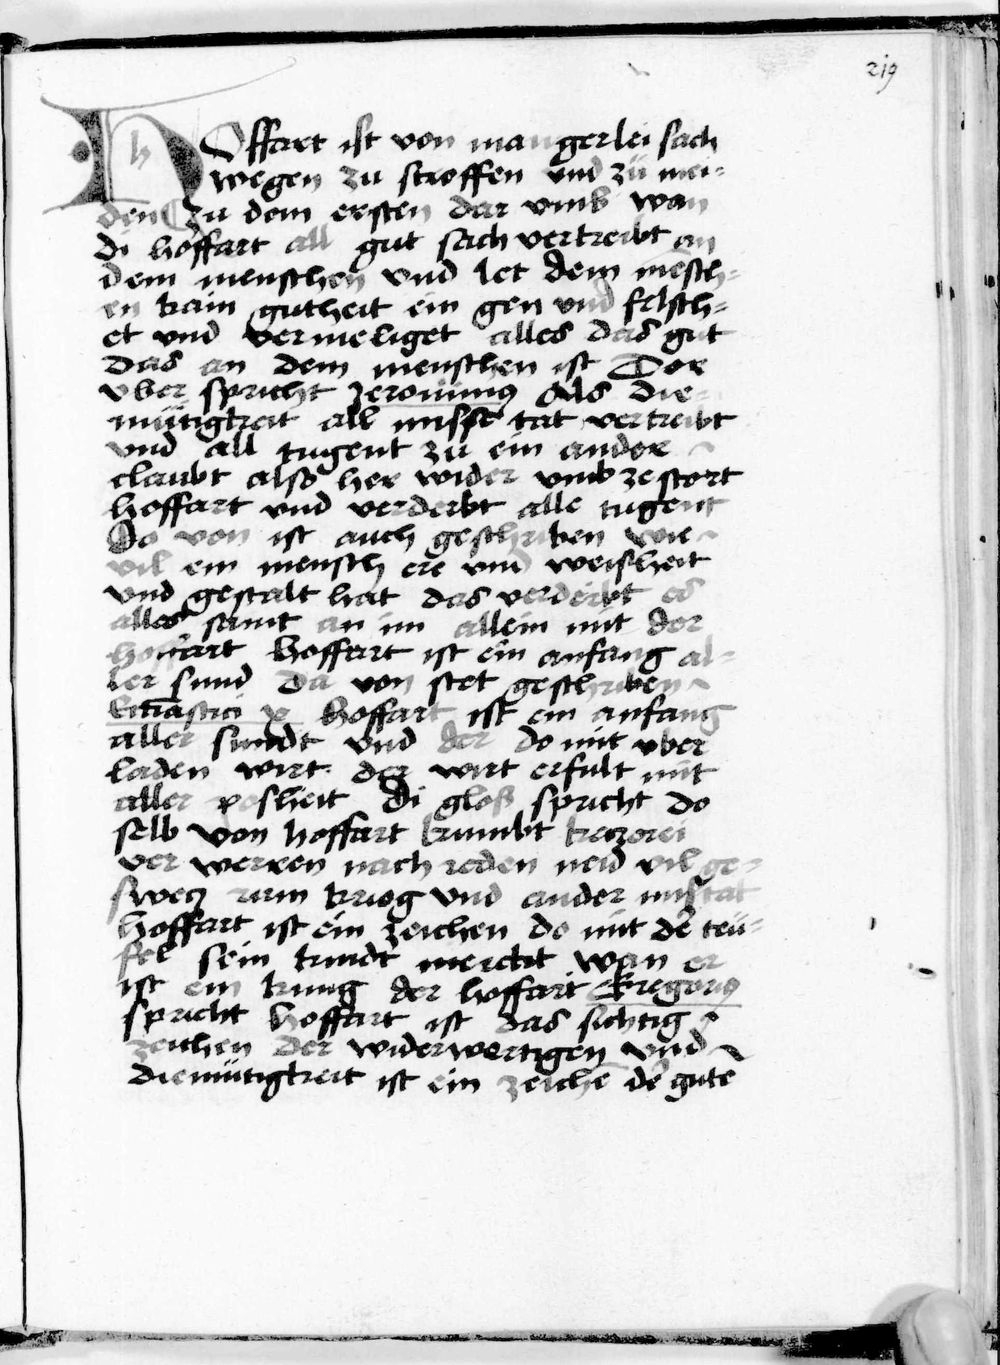 219
Hoffart ist von mangerlei sach
wegen zu stroffen vnd zü mei-
den Zu dem ersten dar vmb wan
di hoffart all gut sach vertreibt an
dem menschen vnd let dem mesch-
en kain gutheit ein gen vnd felsch-
et vnd vermeliget alles das gut
das an dem menschen ist Dor
vber spricht Jeronimus Als die-
mütigkeit all misse tat vertreibt
vnd all tugent zu ein ander
claubt also her wider vmb zestort
hoffart vnd verderbt alle tugent
Do von ist auch geschriben wie
vil ein mensch ere vnd weisheit
vnd gestalt hat das verderbt es
alles samt an im allein mit der
hoffart Hoffart ist ein anfang al-
ler sund da von stet geschriben
x Hoffart ist ein anfang
aller sundt vnd der do mit vber
laden wirt der wirt erfult mit
aller posheit di gloß spricht do
selb von hoffart kumbt keczorei
ver werren nach reden neid vil ge-
swecz rum krieg vnd ander mistat
Hoffart ist ein zeichen do mit der teü-
fel sein kindt merckt wan er
ist ein kung der hoffart Gregorius
spricht Hoffart ist das sichtig
zeichen der widerwertigen vnd
diemütigkeit ist ein zeichē der gute